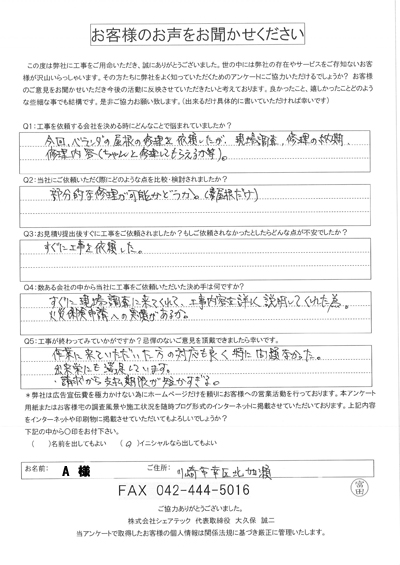 お客様のお声をお聞かせください
この度は弊社に工事をご用命いただき、誠にありがとうございました。世の中には弊社の存在やサービスをご存知ないお客様
が沢山いらっしゃいます。その方たちに弊社をよく知っていただくためのアンケートにご協力いただけるでしょうか? お客様
のご意見をお聞かせいただき今後の活動に反映させていただきたいと考えております。良かったこと、嬉しかったことどのよう
な些細な事でも結構です。是非ご協力お願い致します。(出来るだけ具体的に書いていただければ幸いです)
Q1:工事を依頼する会社を決める時にどんなことで悩まれていましたか?
今回、ベランダの屋根の修理を依頼したが、現場調査、修理の依頼、
修理内容(ちゃんと修理してもらえるか等)。
Q2:当社にご依頼いただく際にどのような点を比較・検討されましたか?
部分的な修理が可能かどうか。(屋根だけ)
Q3:お見積り提出後すぐに工事をご依頼されましたか?もしご依頼されなかったとしたらどんな点が不安でしたか?
すぐに工事を依頼した。
Q4:数ある会社の中から当社に工事をご依頼いただいた決め手は何ですか?
すぐに現場調査に来てくれて、工事内容を詳しく説明してくれた為。
火災保険申請への実績があるから。
Q5:工事が終わってみていかがですか?忌憚のないご意見を頂戴できましたら幸いです。
作業に来ていただいた方の対応も良く特に問題なかった。
出来栄にも満足しています。
・請求から支払期限が短かすぎる。
*弊社は広告宣伝費を極力かけない為にホームページだけを頼りにお客様への営業活動を行っております。本アンケート
用紙またはお客様宅の調査風景や施工状況を随時ブログ形式のインターネットに掲載させていただいております。上記内容
をインターネットや印刷物に掲載させていただいてもよろしいでしょうか?
下記の中から〇印をお付下さい。
( )名前を出してもよい (○)イニシャルなら出してもよい
お名前: A 様 ご住所: 川崎市幸区北加瀬
FAX 042-444-5016
富田
ご協力ありがとうございました。
株式会社シェアテック 代表取締役 大久保 誠二
当アンケートで取得したお客様の個人情報は関係法規に基づき厳正に管理いたします。